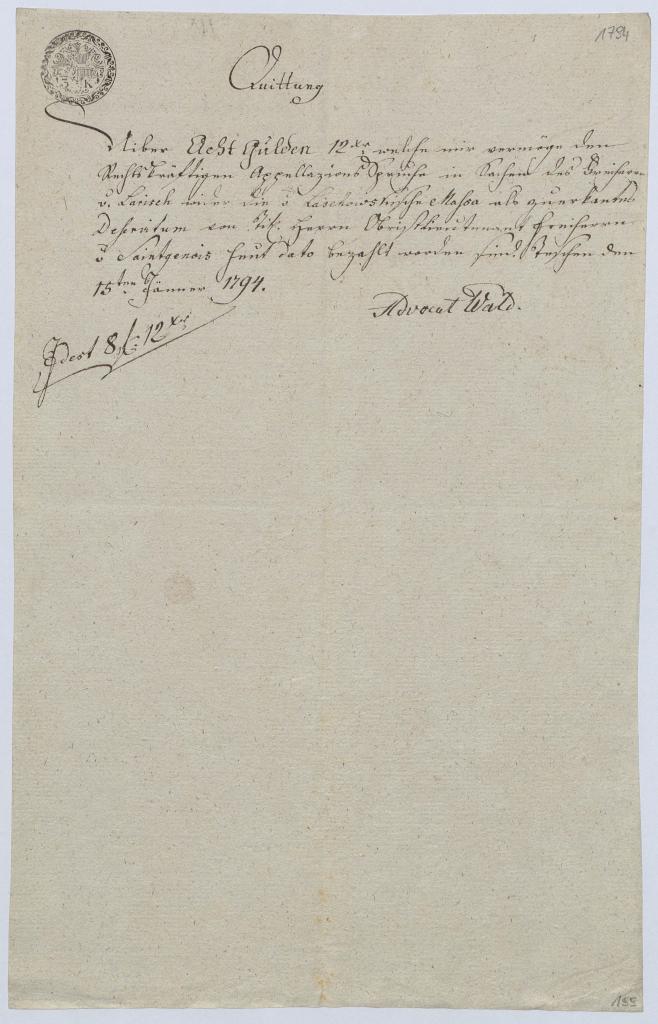 1794
3 K
Quittung
Uiber Acht Gulden 12 xr welche mir vermöge den
Rechtskräftigen Appellazions Spruche in Sachen des Freiherrn
v. Larisch wider die v Laschowskische Massa als zuerkantes
Deservitum von Tit. Herrn Obristlieutenant Freiherrn
v Saintgenois heut dato bezahlt worden sind. Teschen den
15ten Jänner 1794.
Advocat Wald.
Idest 8 f. 12 xr
155